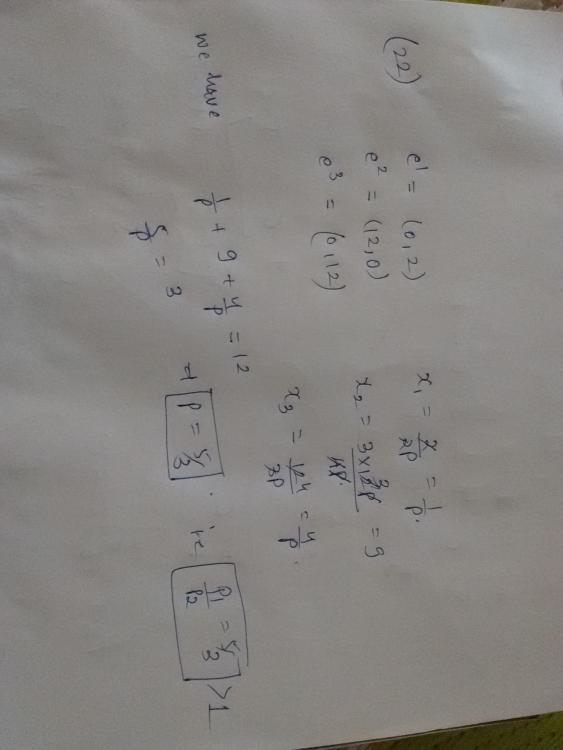 (22) e¹ = (0,2) x₁ = 2/2p = 1/p.
e² = (12,0) x₂ = 3×12p/4p = 9
e³ = (0,12) x₃ = 12/3p = 4/p.
we have 1/p + 9 + 4/p = 12
5/p = 3 ⇒ p = 5/3 . ie p1/p2 = 5/3 >1